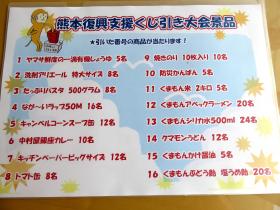 熊本復興支援くじ引き大会景品
★引いた番号の商品が当たります!
1 ヤマサ鮮度の一滴有機しょうゆ 5名
2 洗剤アリエール 特大サイズ 8名
3 たっぷりパスタ 500グラム 8名
4 なが〜いラップ50M 16名
5 キャンベルコーンスープ缶 12名
6 中村屋銀座カレー 10名
7 キッチンペーパービッグサイズ 12名
8 トマト缶 8名
9 焼きのり 10枚入り 10名
10 防災かんぱん 5名
11 くまもん米 2キロ 5名
12 くまもんアベックラーメン 20名
13 くまもんシリカ水500ml 24名
14 クマモンうどん 12名
15 くまもんかけ醤油 5名
16 くまもんぶどう飴 塩うめ飴 20名